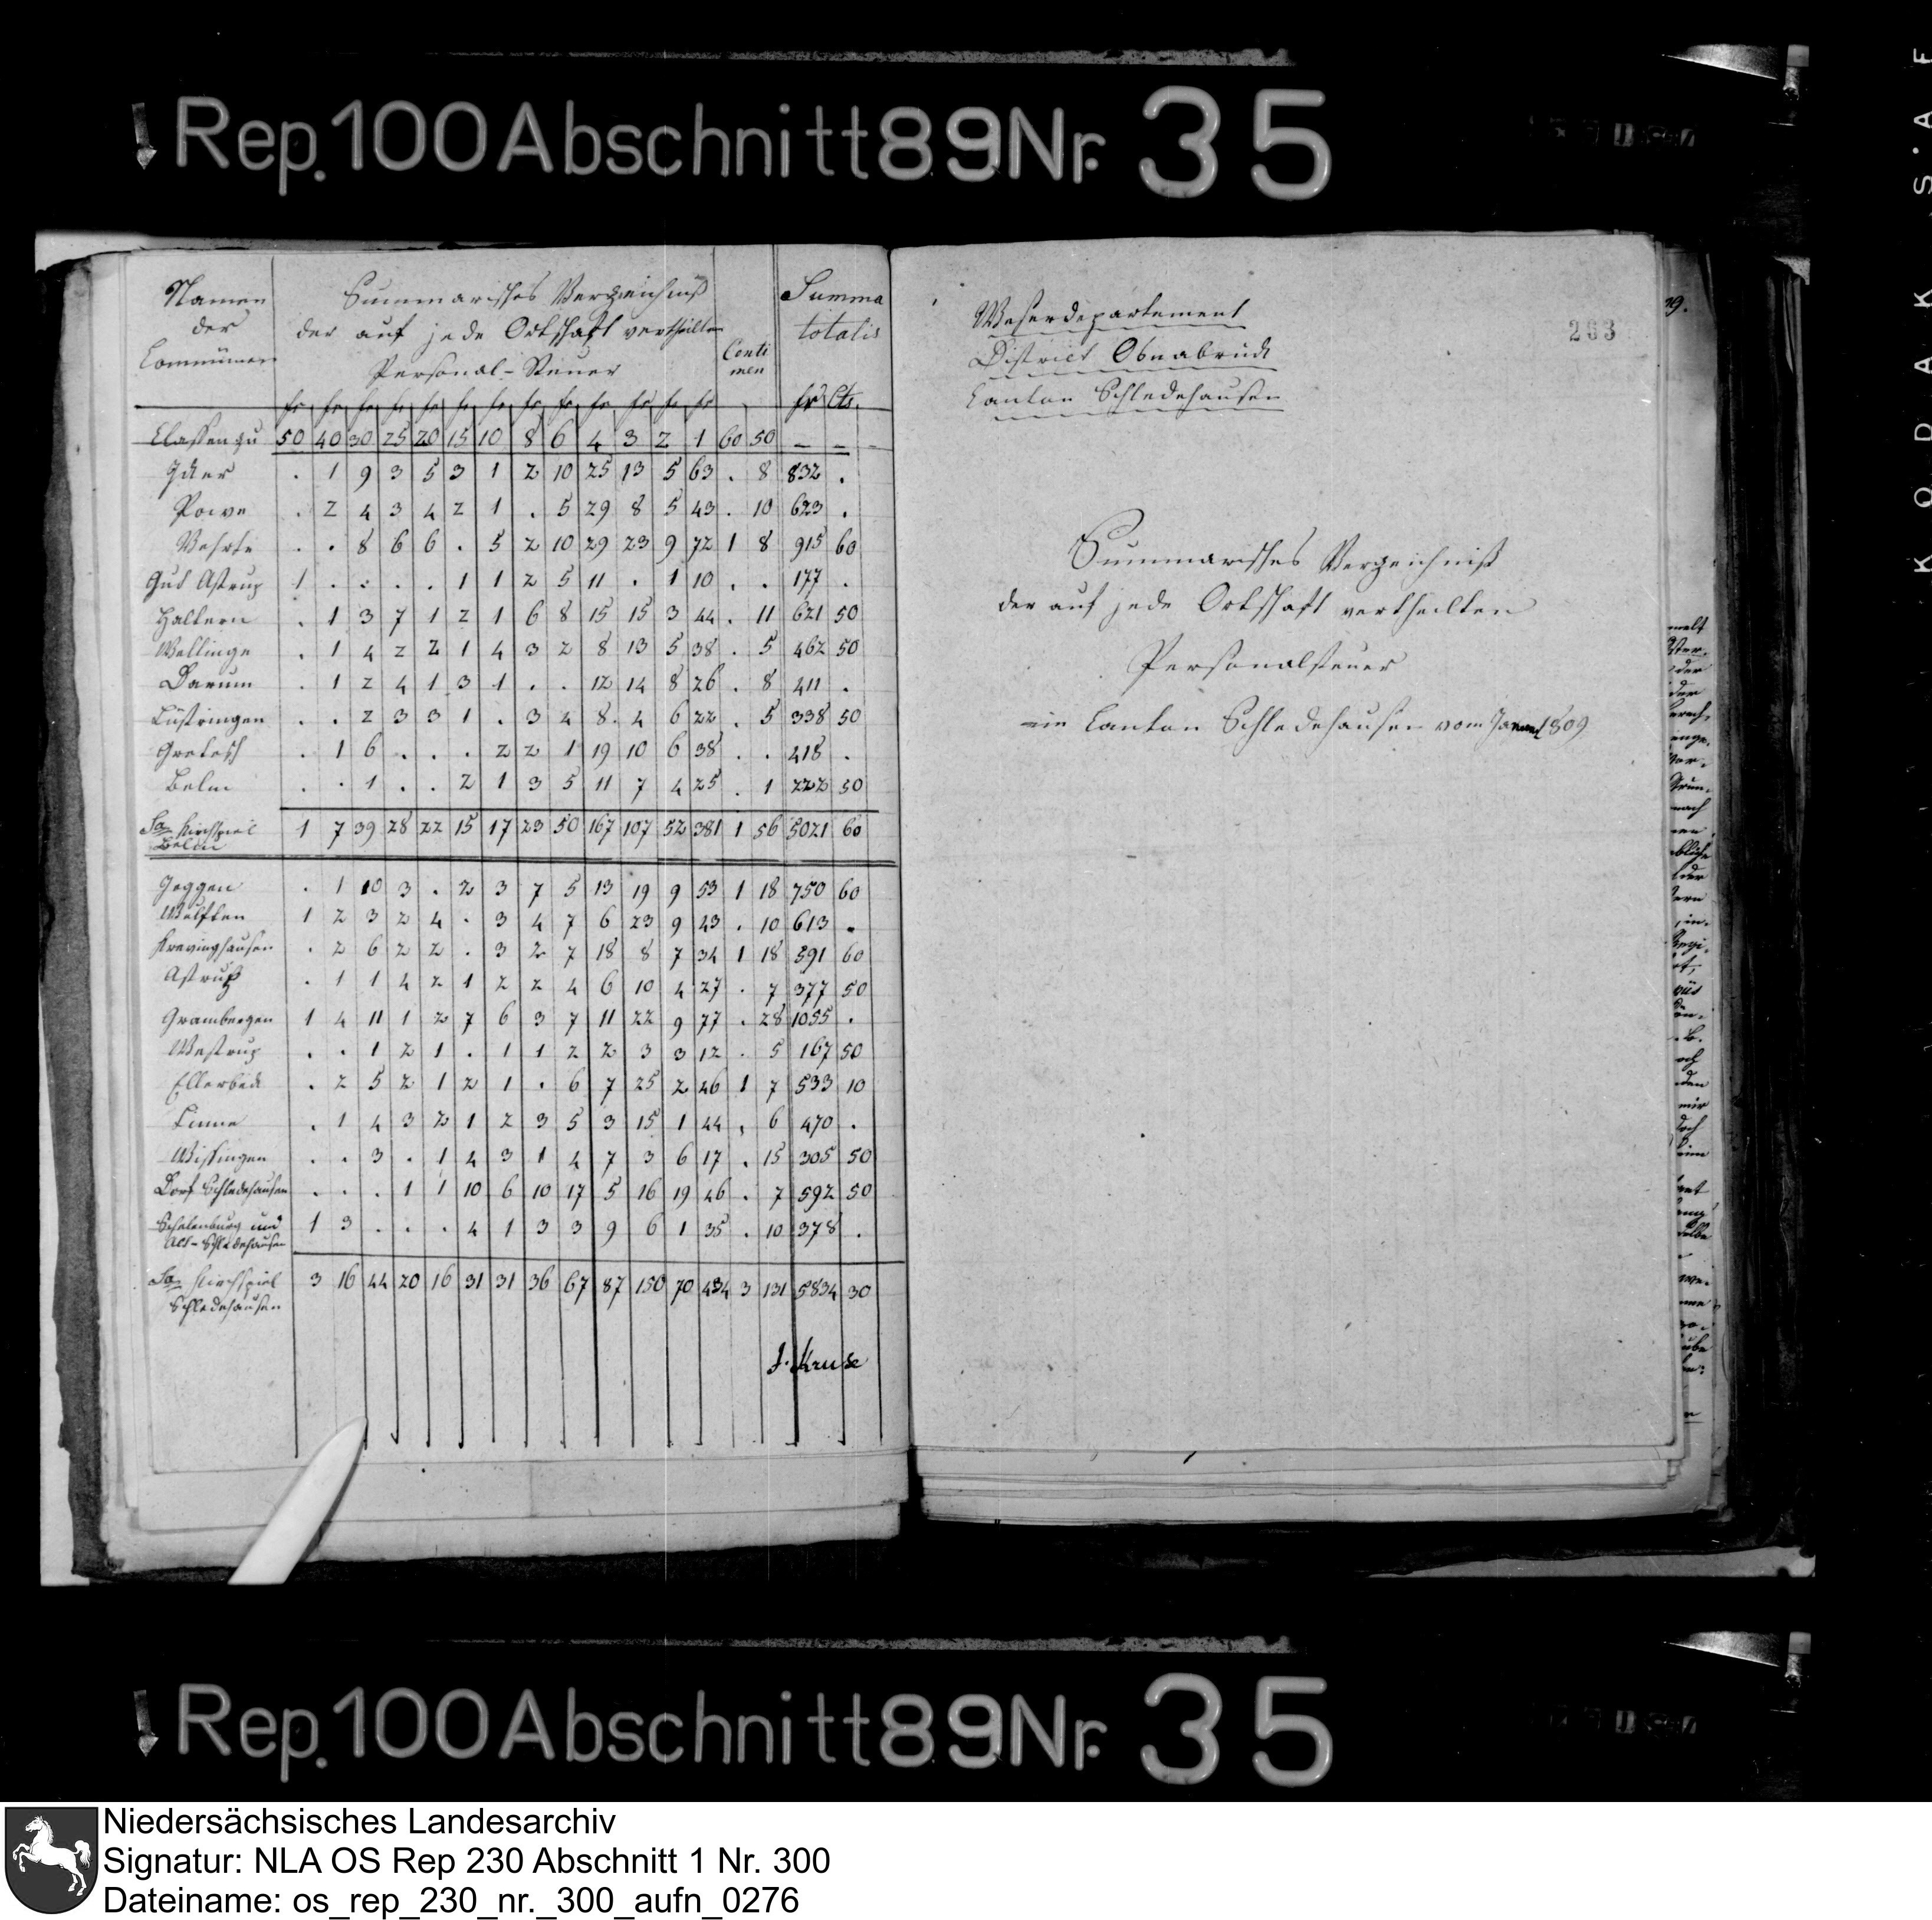 Rep. 100 Abschnitt 89 Nr. 35
Namen der Communen
Summarisches Verzeichniß
der auf jede Ortschaft vertheilten
Personal-Steuer
Centimen
Summa totalis
fr fr fr fr fr fr fr fr fr fr fr fr fr fr Cts.
Classen zu 50 40 30 25 20 15 10 8 6 4 3 2 1 60 50 – –
Icker . 1 9 3 5 3 1 2 10 25 13 5 63 . 8 832 .
Powe . 2 4 3 4 2 1 . 5 29 8 5 43 . 10 623 .
Vehrte . . 8 6 6 . 5 2 10 29 23 9 72 1 8 915 60
Gut Astrup 1 . . . . 1 1 2 5 11 . 1 10 . . 177 .
Haltern . 1 3 7 1 2 1 6 8 15 15 3 44 . 11 621 50
Wellinge . 1 4 2 2 1 4 3 2 8 13 5 38 . 5 462 50
Darum . 1 2 4 1 3 1 . . 12 14 8 26 . 8 411 .
Lüstringen . . 2 3 3 1 . 3 4 8 4 6 22 . 5 338 50
Gretesch . 1 6 . . . 2 2 1 19 10 6 38 . . 418 .
Belm . . 1 . . 2 1 3 5 11 7 4 25 . 1 222 50
Sa Kirchspiel Belm 1 7 39 28 22 15 17 23 50 167 107 52 381 1 56 5021 60
Jeggen . 1 10 3 . 2 3 7 5 13 19 9 53 1 18 750 60
Wulften 1 2 3 2 4 . 3 4 7 6 23 9 43 . 10 613 .
Krevinghausen . 2 6 2 2 . 3 2 7 18 8 7 34 1 18 591 60
Astrup . 1 1 4 2 1 2 2 4 6 10 4 27 . 7 377 50
Grambergen 1 4 11 1 2 7 6 3 7 11 22 9 77 . 28 1055 .
Westrup . . 1 2 1 . 1 1 2 2 3 3 12 . 5 167 50
Ellerbeck . 2 5 2 1 2 1 . 6 7 25 2 46 1 7 533 10
Linne . 1 4 3 2 1 2 3 5 3 15 1 44 . 6 470 .
Wissingen . . 3 . 1 4 3 1 4 7 3 6 17 . 15 305 50
Dorf Schledehausen . . . 1 1 10 6 10 17 5 16 19 46 . 7 592 50
Schelenburg und Alt-Schledehausen 1 3 . . . 4 1 3 3 9 6 1 35 . 10 378 .
Sa Kirchspiel Schledehausen 3 16 44 20 16 31 31 36 67 87 150 70 434 3 131 5834 30
J. Kruse
263
Weserdepartement
District Osnabrück
Canton Schledehausen
Summarisches Verzeichniß
der auf jede Ortschaft vertheilten
Personalsteuer
im Canton Schledehausen vom Januar 1809
39.
KODAK SAF
Rep. 100 Abschnitt 89 Nr. 35
Niedersächsisches Landesarchiv
Signatur: NLA OS Rep 230 Abschnitt 1 Nr. 300
Dateiname: os_rep_230_nr._300_aufn_0276